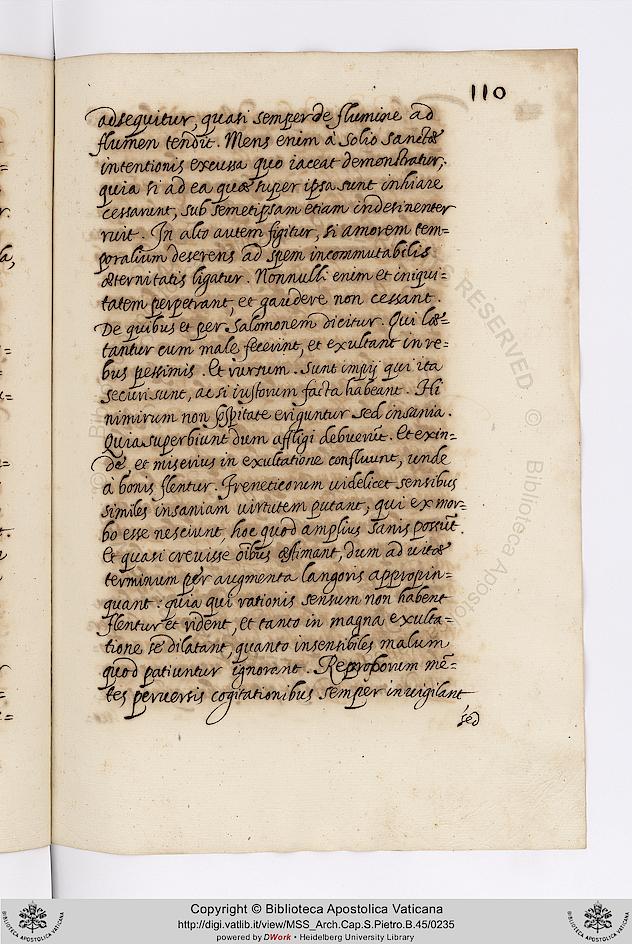 110
adsequitur, quasi semper de flumine ad
flumen tendit. Mens enim à solio sanctæ
intentionis excussa quo iaceat demonstratur,
quia si ad ea quæ super ipsa sunt inhiare
cessarunt, sub semetipsam etiam indesinenter
ruit. In alto autem figitur, si amorem tem=
poralium deserens ad spem incommutabilis
æternitatis ligatur. Nonnulli enim et iniqui=
tatem perpetrant, et gaudere non cessant.
De quibus et per Salomonem dicitur. Qui læ=
tantur cum male fecerint, et exultant in re=
bus pessimis. Et rursum. Sunt impij qui ita
securi sunt, ac si iustorum facta habeant. Hi
nimirum non pspitate eriguntur sed insania.
Quia superbiunt dum affligi debuerūt. Et exin=
de, et miserius in exultatione confluunt, unde
a bonis flentur. Freneticorum videlicet sensibus
similes insaniam virtutem putant, qui ex mor=
bo esse nesciunt, hoc quod amplius sanis possūt.
Et quasi crevisse oībus æstimant, dum ad vitæ
terminum per augmenta langoris appropin=
quant: quia qui rationis sensum non habent
flentur et rident, et tanto in magna exulta=
tione se dilatant, quanto insensibiles malum
quod patiuntur ignorant. Reproborum mē=
tes perversis cogitationibus semper invigilant
sed
Copyright © Biblioteca Apostolica Vaticana
http://digi.vatlib.it/view/MSS_Arch.Cap.S.Pietro.B.45/0235
powered by DWork • Heidelberg University Library